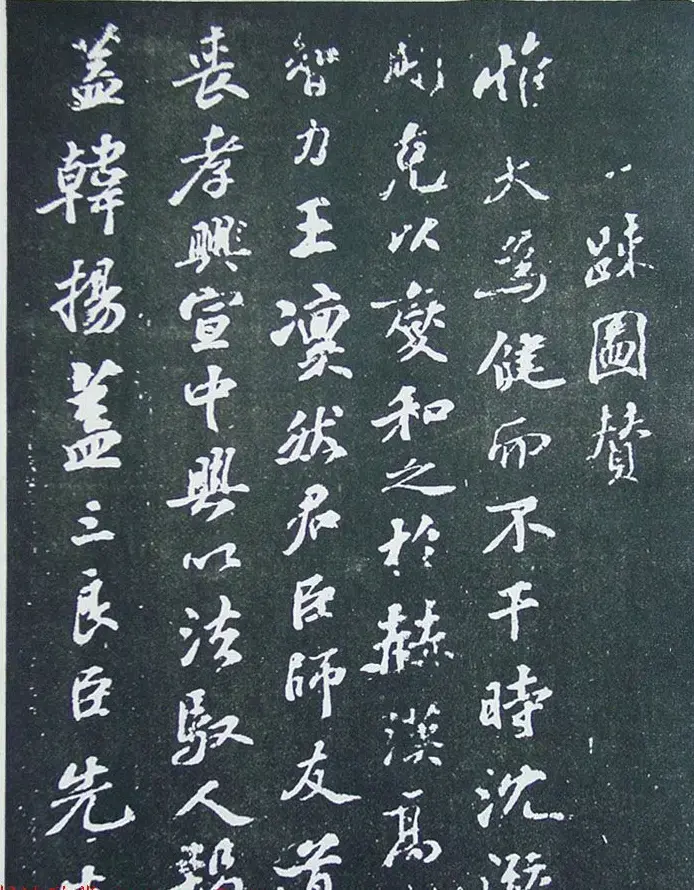 二踈圖贊
惟天為健而不干時沈潛
剛克以燮和之於赫漢高
智力王凜然君臣師友道
喪孝興宣中興以法馭人
蓋韓揚蓋三良臣先